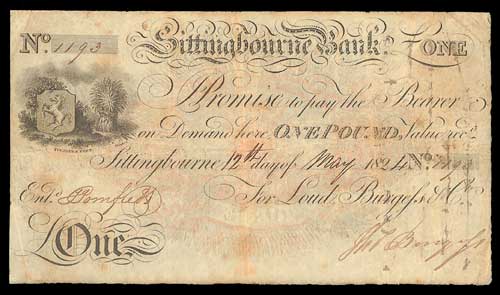 No. 1193 Sittingbourne Bank. ONE
I Promise to pay the Bearer
on Demand here ONE POUND, Value recd.
Sittingbourne 12th day of May 1824 No. 1193
Entd. For Loud, Burgess & Co.
£One. Jno Burgess